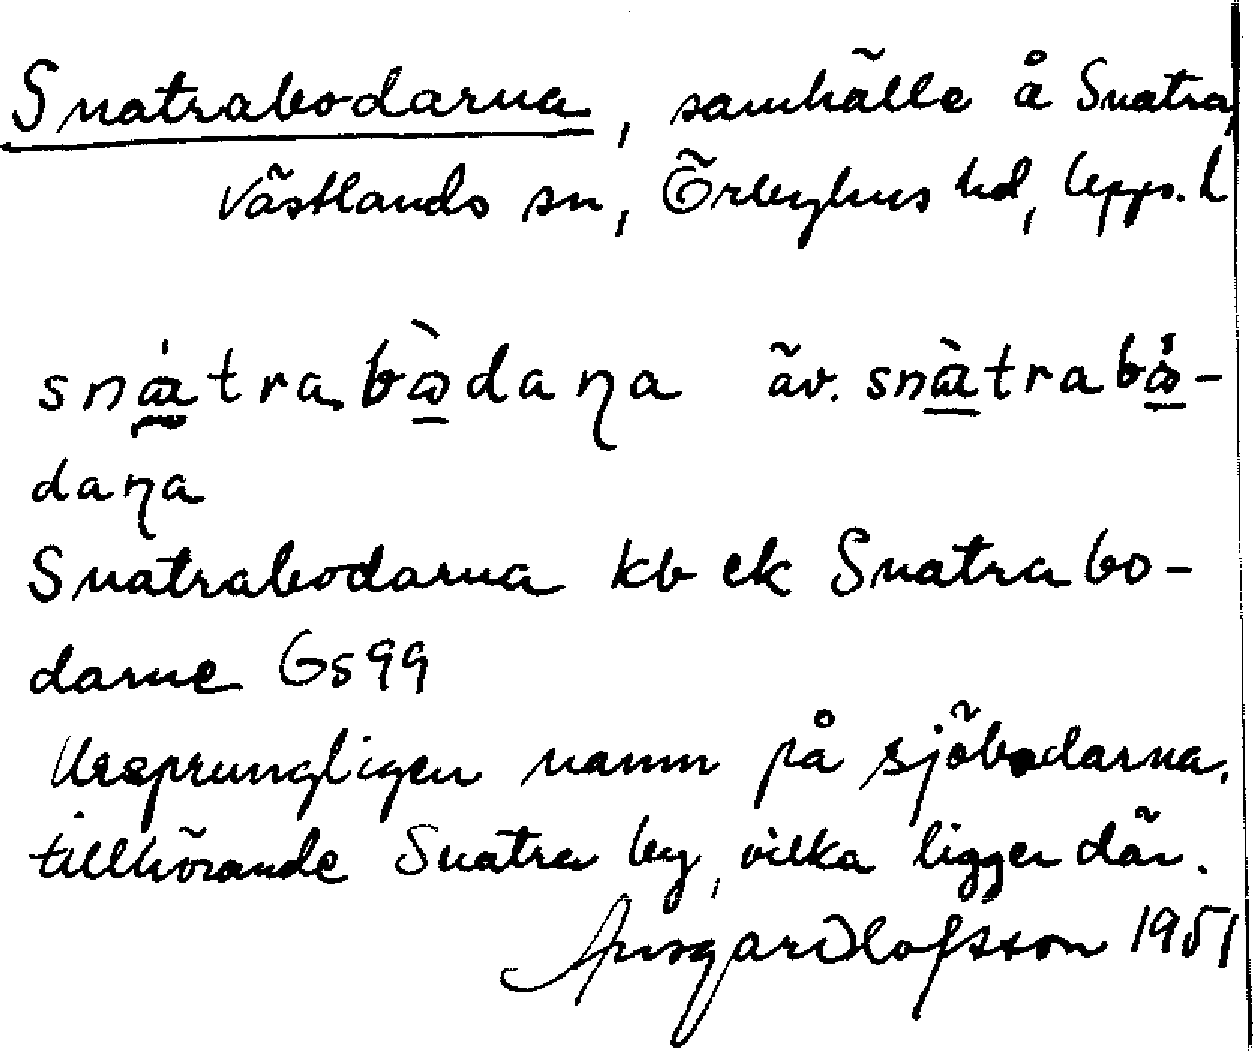 Snatrabodarna, samhälle å Snatra,
Västlands sn, Örbyhus hd, Upps. l
snὰtra bὼdaƞa äv. snὰtrabὼ-
daƞa
Snatrabodarna kb ek Snatrabo-
darne Gs 99
Ursprungligen namn på sjöbodarna,
tillhörande Snatra by, vilka ligger där.
Ansgar Olofsson 1951